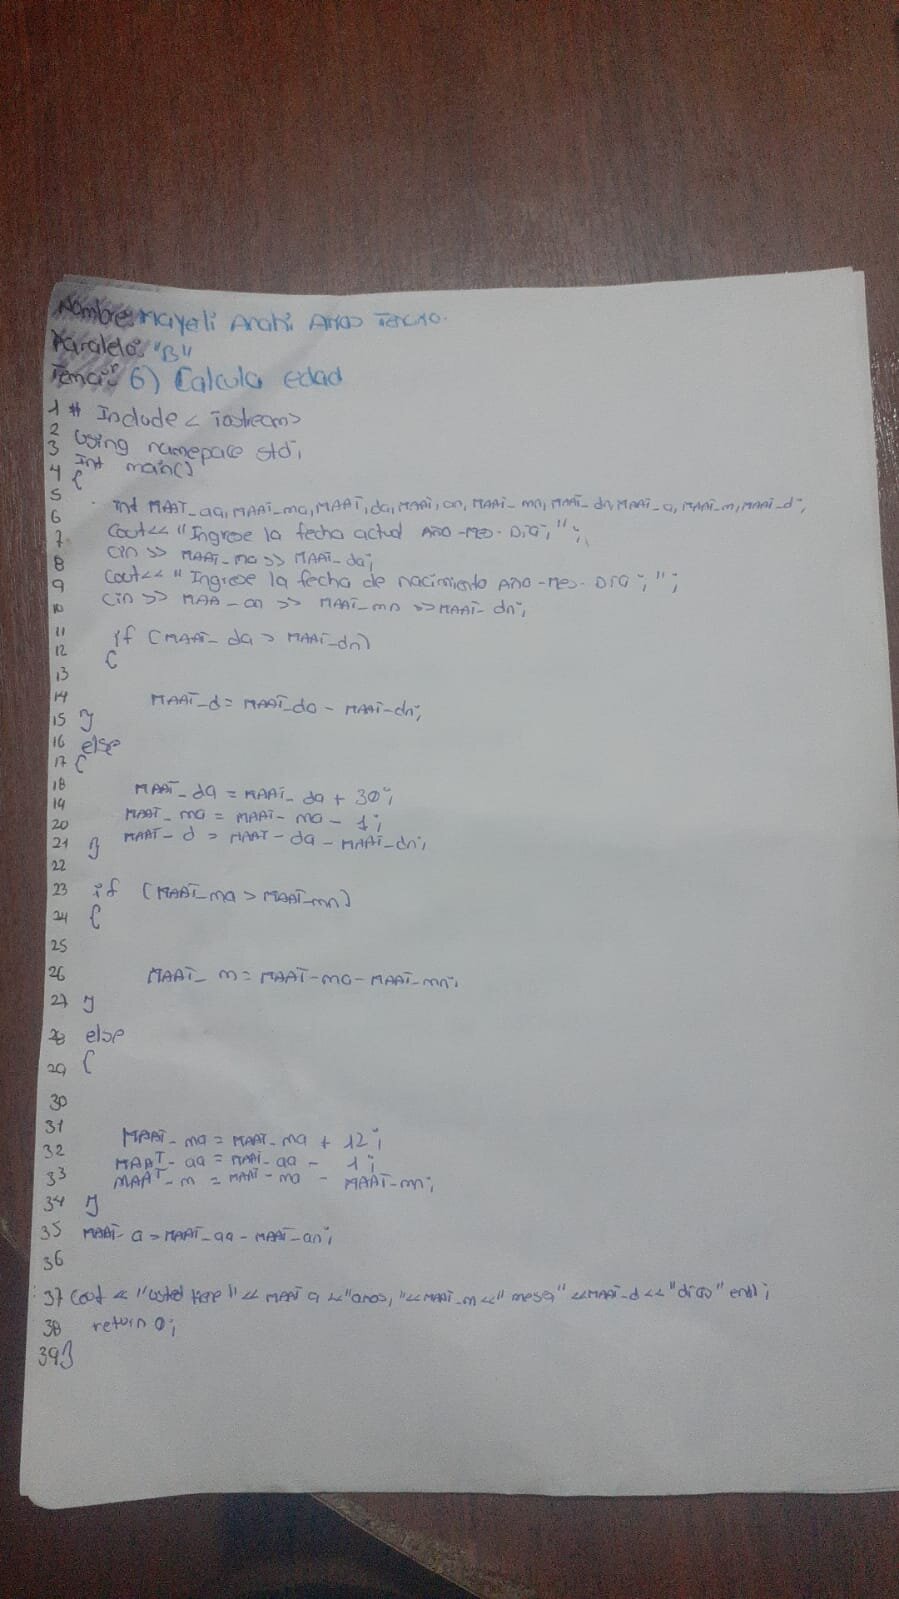 Nombre: Mayeli Arahi Arias Tercero.
Paralelo: "B"
Tema: 6) Calcula edad
1 # Include < iostream>
2
3 Using namepace std;
4 Int main()
5 {
6 int MAAT_aa, MAAI_ma, MAAT, da, MAAI, an, MAAI_mn, MAAI_dn, MAAI_a, MAAI_m, MAAI_d;
7 Cout<< "Ingrese la fecha actual AÑO-MES-DIA;";
8 Cin >> MAAI_ma >> MAAI_da;
9 Cout<< "Ingrese la fecha de nacimiento AÑO-MES-DIA;";
10 Cin >> MAA_an >> MAAI_mn >> MAAI_dn;
11 if (MAAI_da > MAAI_dn)
12 {
13
14 MAAI_d = MAAI_da - MAAI-dn;
15 }
16 else
17 {
18 MAAI_da = MAAI_da + 30;
19 MAAI_ma = MAAI-ma - 1;
20 MAAI-d = MAAT-da - MAAI-dn;
21 }
22
23 if (MAAI_ma > MAAI_mn)
24 {
25
26 MAAI_m = MAAI-ma-MAAI-mn;
27 }
28 else
29 {
30
31 MAAI_ma = MAAI_ma + 12;
32 MAAT-aa = MAAI-aa - 1;
33 MAAT-m = MAAI-ma - MAAI-mn;
34 }
35 MAAI-a = MAAI_aa - MAAI_an;
36
37 Cout << "usted tiene" << MAAI a << "anos," << MAAI_m << "meses" << MAAI-d << "dias" endl;
38 return 0;
39 }